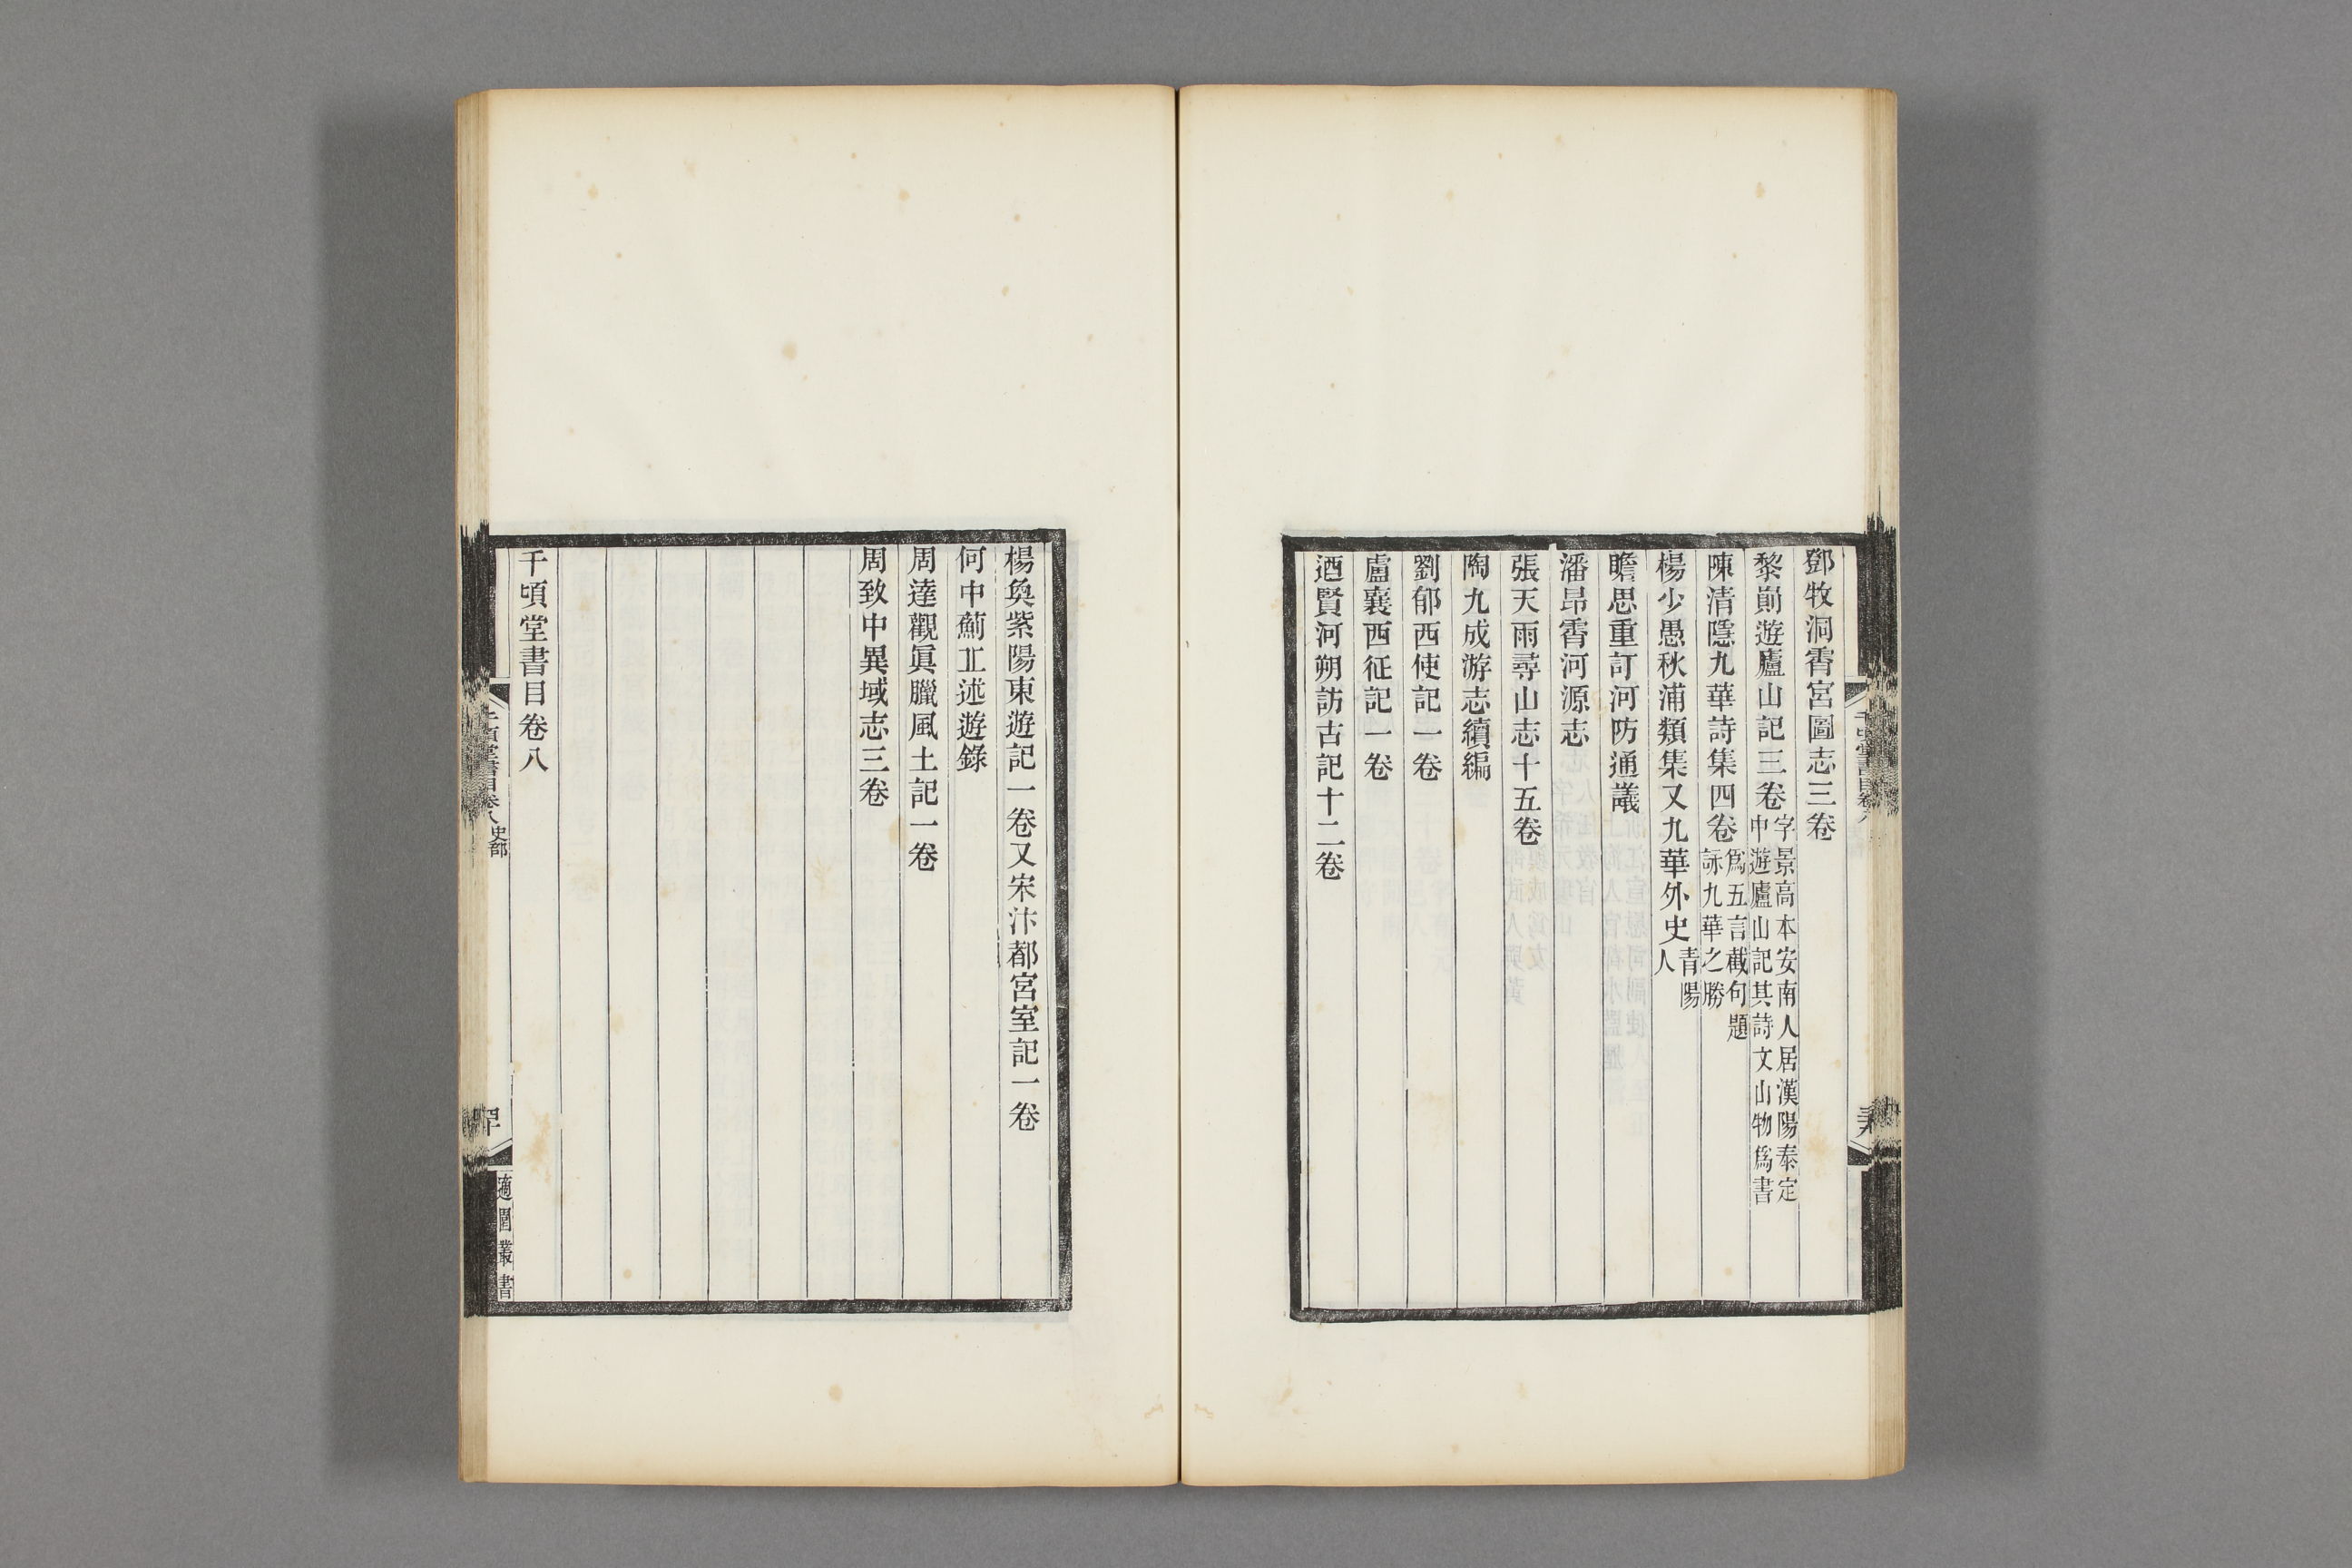 鄧牧洞霄宮圖志三卷
黎崱遊廬山記三卷字景高本安南人居漢陽泰定
中遊廬山記其詩文山物爲書
陳清隱九華詩集四卷爲五言截句題
詠九華之勝
楊少愚秋浦類集又九華外史青陽
人
瞻思重訂河防通議
潘昂霄河源志
張天雨尋山志十五卷
陶九成游志續編
劉郁西使記一卷
盧襄西征記一卷
迺賢河朔訪古記十二卷
楊奐紫陽東遊記一卷又宋汴都宮室記一卷
何中薊丘述遊錄
周達觀眞臘風土記一卷
周致中異域志三卷
千頃堂書目卷八
千頃堂書目卷八 史部
適園叢書